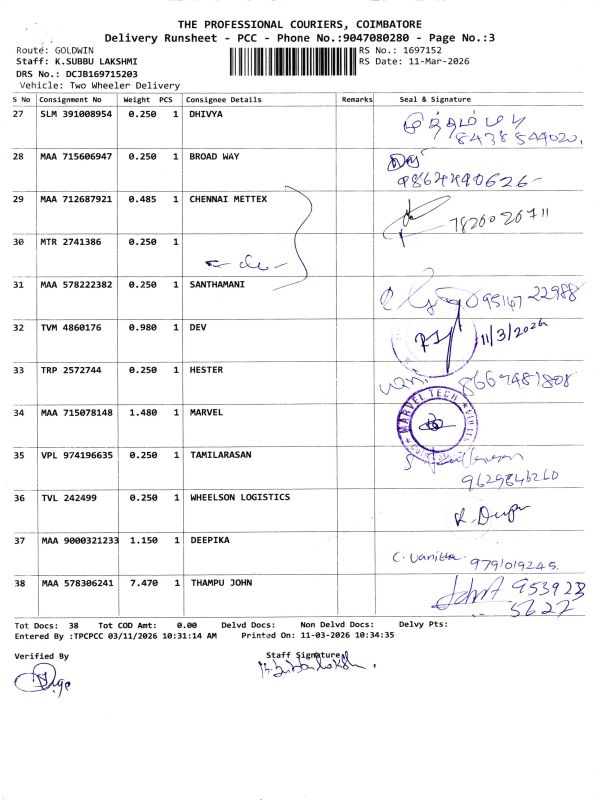 THE PROFESSIONAL COURIERS, COIMBATORE
Delivery Runsheet - PCC - Phone No.:9047080280 - Page No.:3
Route: GOLDWIN RS No.: 1697152
Staff: K.SUBBU LAKSHMI RS Date: 11-Mar-2026
DRS No.: DCJB169715203
Vehicle: Two Wheeler Delivery
S No Consignment No Weight PCS Consignee Details Remarks Seal & Signature
27 SLM 391008954 0.250 1 DHIVYA
8438544020.
28 MAA 715606947 0.250 1 BROAD WAY
9864490626-
29 MAA 712687921 0.485 1 CHENNAI METTEX
30 MTR 2741386 0.250 1
31 MAA 578222382 0.250 1 SANTHAMANI
095147 22988
32 TVM 4860176 0.980 1 DEV
11/3/2026
33 TRP 2572744 0.250 1 HESTER
vani 8667481808
34 MAA 715078148 1.480 1 MARVEL
MARVEL TECH
35 VPL 974196635 0.250 1 TAMILARASAN
9629846260
36 TVL 242499 0.250 1 WHEELSON LOGISTICS
37 MAA 9000321233 1.150 1 DEEPIKA
C. Vanitha 9791019245.
38 MAA 578306241 7.470 1 THAMPU JOHN
John 953923
5627
Tot Docs: 38 Tot COD Amt: 0.00 Delvd Docs: Non Delvd Docs: Delvy Pts:
Entered By :TPCPCC 03/11/2026 10:31:14 AM Printed On: 11-03-2026 10:34:35
Verified By Staff Signature